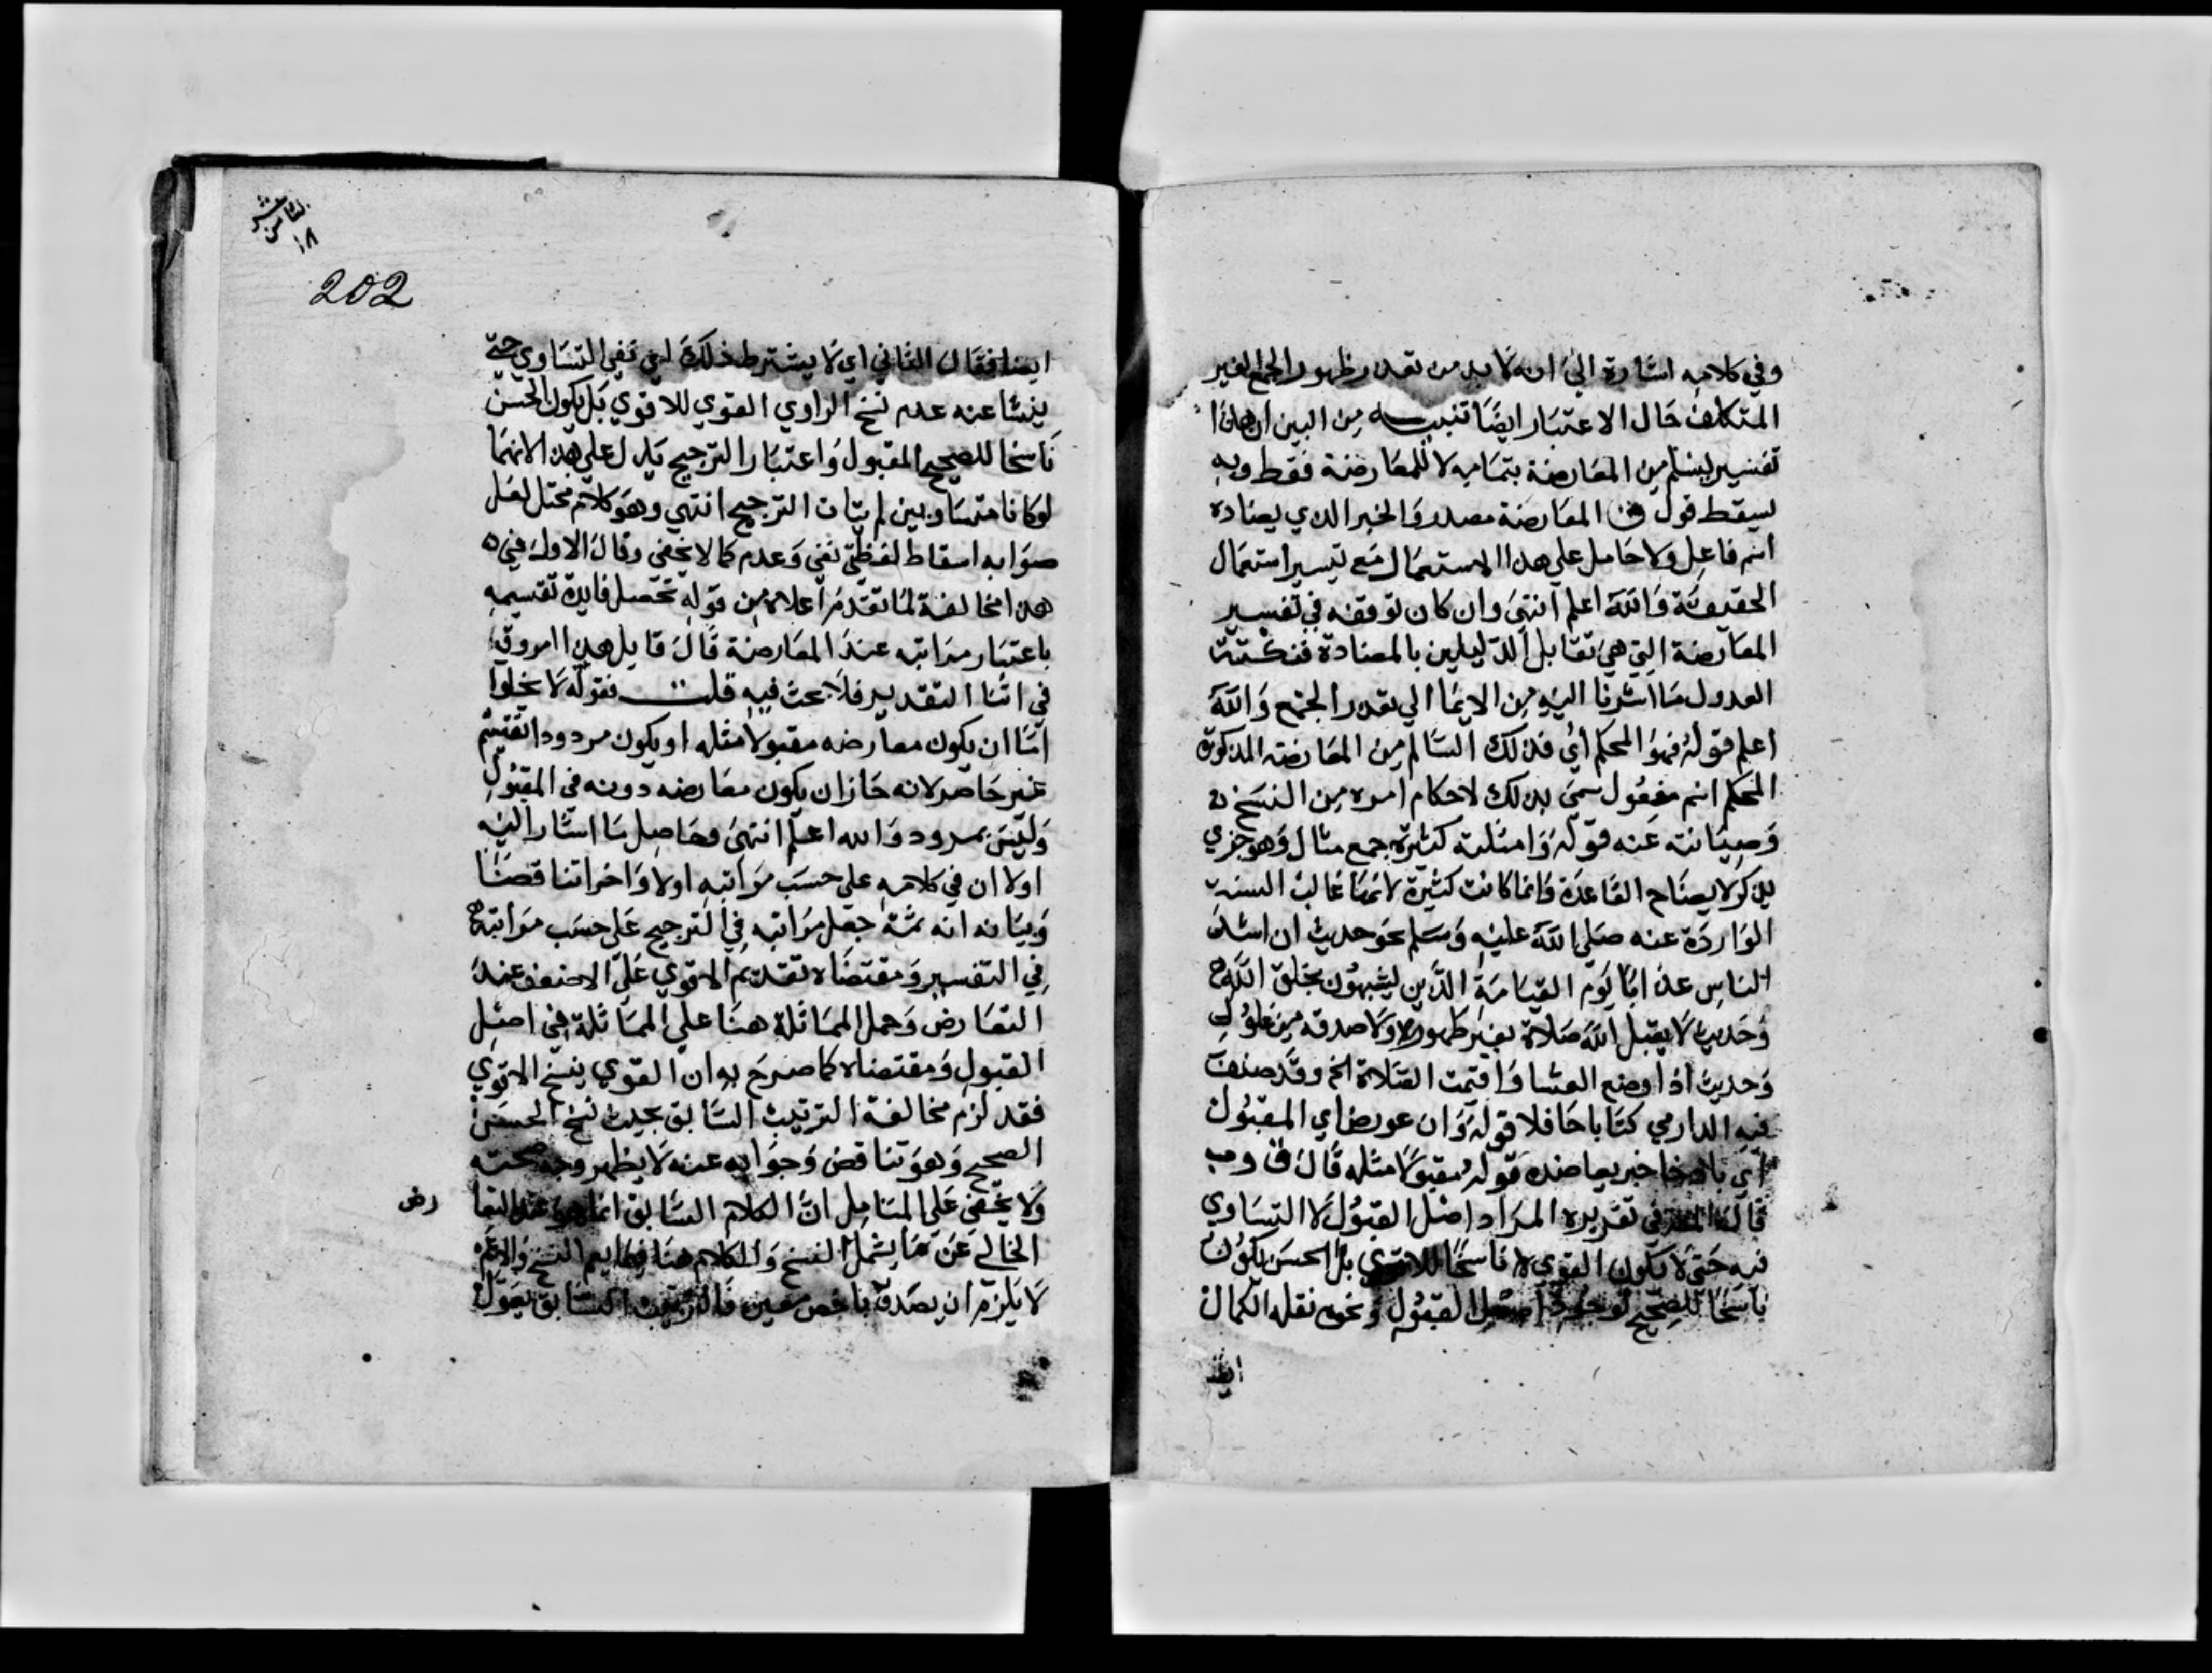 وفي كلامه اشارة الى انه لا بد من تقدر ظهور الجمع الغير
المتكلف حال الاعتبار ايضا تنبيه من البين ان هذا
تفسير ليسلم من المعارضة بتمامه لا للمعارضة فقط وبه
يسقط قول ق المعارضة مصدر والخبر الذي يضاده
اسم فاعل ولا حامل على هذا الاستعمال مع تيسير استعمال
الحقيقة والله اعلم انتهى وان كان توقفه في تفسير
المعارضة التي هي تقابل الدليلين بالمضادة فنكتته
العدول ما اشرنا اليه من الايما الي تعدر الجمع والله
اعلم قوله فهو المحكم أي فذلك السالم من المعارضة المذكورة
المحكم اسم مفعول سمى بذلك لاحكام امره من النسخ
وصيانته عنه قوله وامثلته كثيرة جمع مثال وهو جزي
يذكر لايضاح القاعدة وانما كانت كثيرة لانها غالب السنة
الواردة عنه صلى الله عليه وسلم نحو حديث ان اشد
الناس عذابا يوم القيامة الذين يشبهون بخلق الله
وحديث لا يقبل الله صلاة بغير طهور ولا صدقة من غلول
وحديث اذا وضع العشا واقيمت الصلاة الخ وقد صنف
فيه الدارمي كتابا حافلا قوله وان عورض اي المقبول
خبر يعاضده قوله مقبولا مثله قال ق و
قاله في تقريره المراد اصل القبول لا التساوي
فيه حتى لا يكون القوي ناسخا للاقوي بل الحسن يكون
ناسخا للصحيح لوجود اصل القبول ونحوه نقله الكمال
ايضا
الثامن عشر
١٨
202
ايضا فقال الثاني اي لا يشترط ذلك اي نفي التساوي حتى
ينشا عنه عدم نسخ الراوي القوي للاقوي بل يكون الحسن
ناسخا للصحيح المقبول واعتبار الترجيح يدل على هذا لانهما
لو كانا متساويين لم يتات الترجيح انتهي وهو كلام مختل لعل
صوابه اسقاط لفظتي نفي وعدم كما لا يخفى وقال الاول في
هذا مخالفة لما تقدم اعلاه من قوله تحصل فايدة تقسيمه
باعتبار مراتبه عند المعارضة قال قايل هذا امر وقع
في اثنا التقدير فلا بحث فيه قلت فقوله لا يخلوا
اما ان يكون معارضه مقبولا مثله او يكون مردودا تقسيم
غير حاصر لانه جاز ان يكون معارضه دونه في المقبول
وليس بمردود والله اعلم انتهى وحاصل ما اشار اليه
اولا ان في كلامه على حسب مراتبه اولا واخرا تناقضا
وبيانه انه ثمة جعل مراتبه في الترجيح على حسب مراتبه
في التفسير ومقتضاه تقديم الاقوي على الاضعف عند
التعارض وحمل المماثلة هنا على المماثلة في اصل
القبول ومقتضاه كما صرح به ان القوي ينسخ الاقوي
فقد لزم مخالفة الترتيب السابق بحيث نسخ الحسن
الصحيح وهو تناقض وجوابه عنه لا يظهر وجه صحته
ولا يخفى على المتامل ان الكلام السابق انما هو عند التعا
رض
الخالي عن ما يشمل النسخ والكلام هنا فيما يعم النسخ والاعم
لا يلزم ان يصدق باخص معين فالترتيب السابق يقول